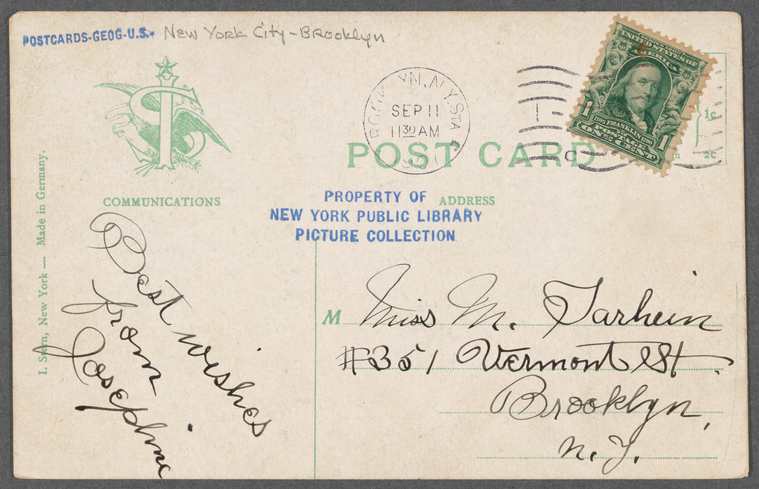 POSTCARDS-GEOG-U.S. New York City - Brooklyn
SEP 11
11 30 AM
UNITED STATES OF
AMERICA
FRANKLIN
POSTAGE
1 ONE CENT 1
1c
2c
POST CARD
COMMUNICATIONS
ADDRESS
PROPERTY OF
NEW YORK PUBLIC LIBRARY
PICTURE COLLECTION
I. Stern, New York — Made in Germany.
Best wishes
from
Josephine
M Miss M. Tarhein
#351 Vermont St.
Brooklyn,
N.Y.